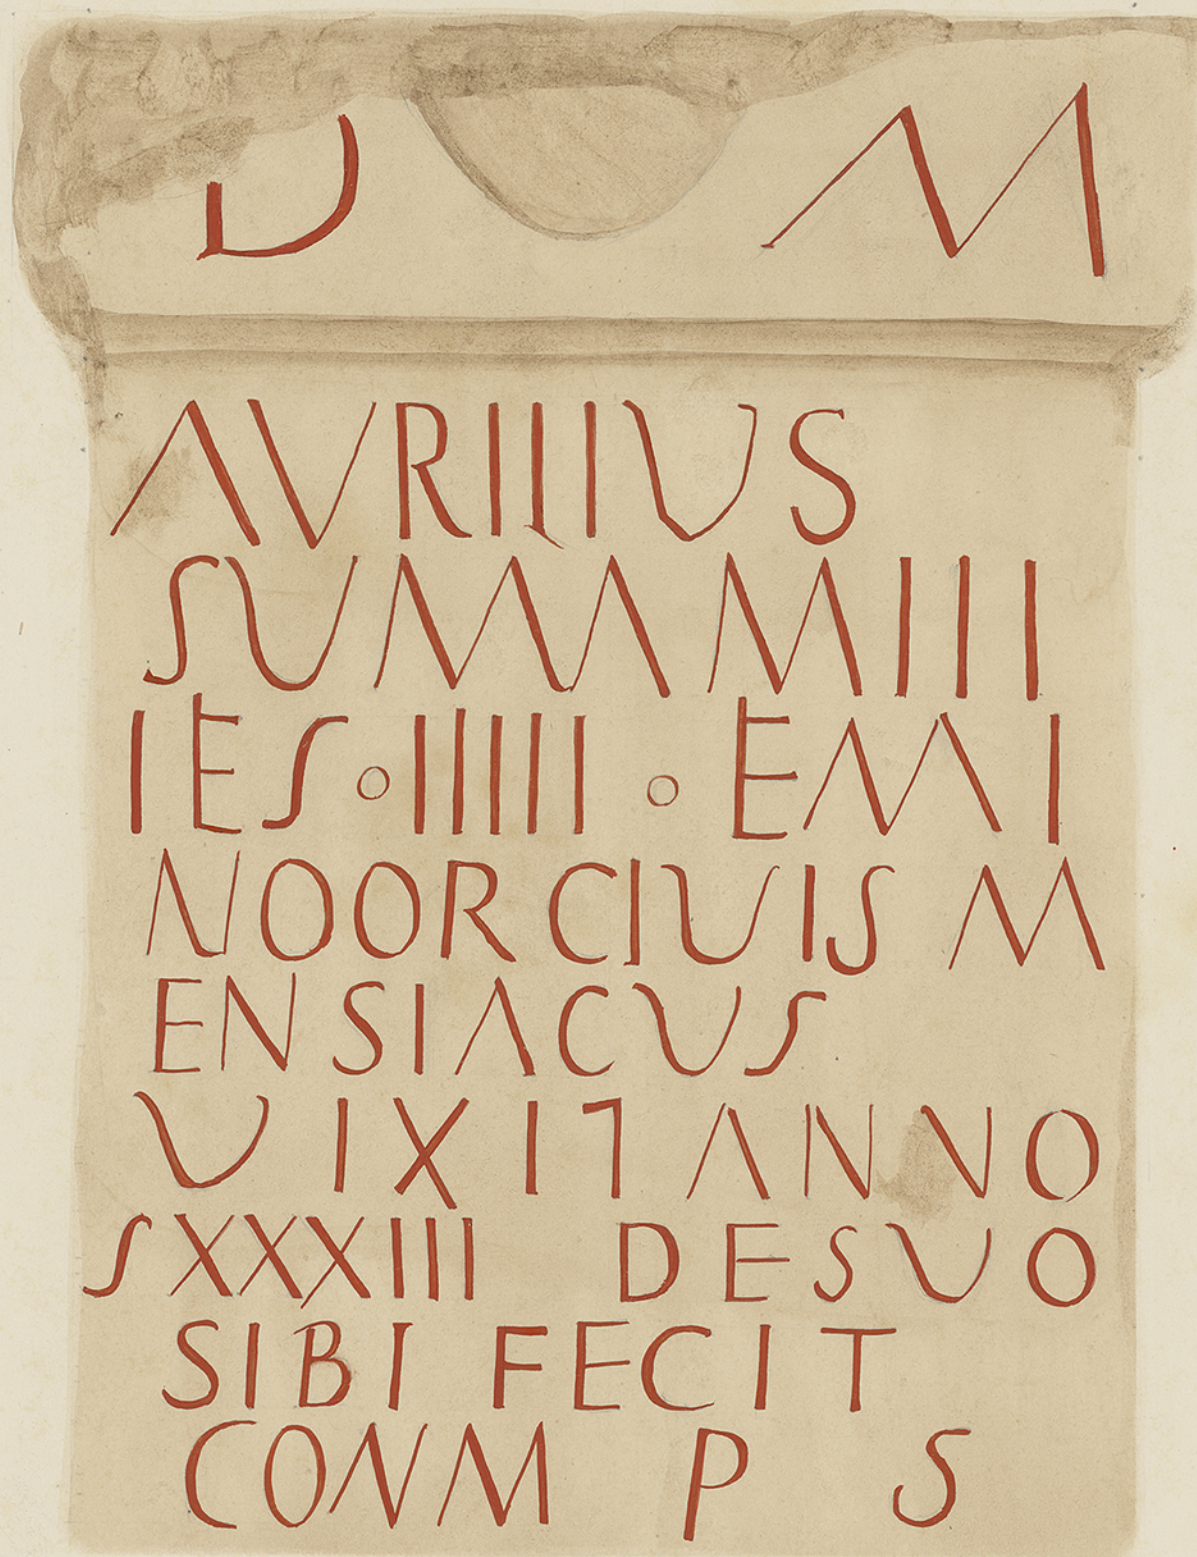 D M
AVRILIUS
SUMAMIII
IES ∘ IIIII ∘ EMI
NOORCIUIS M
ENSIACUS
UIXIT ANNO
SXXXIII DESUO
SIBI FECIT
CONM P S